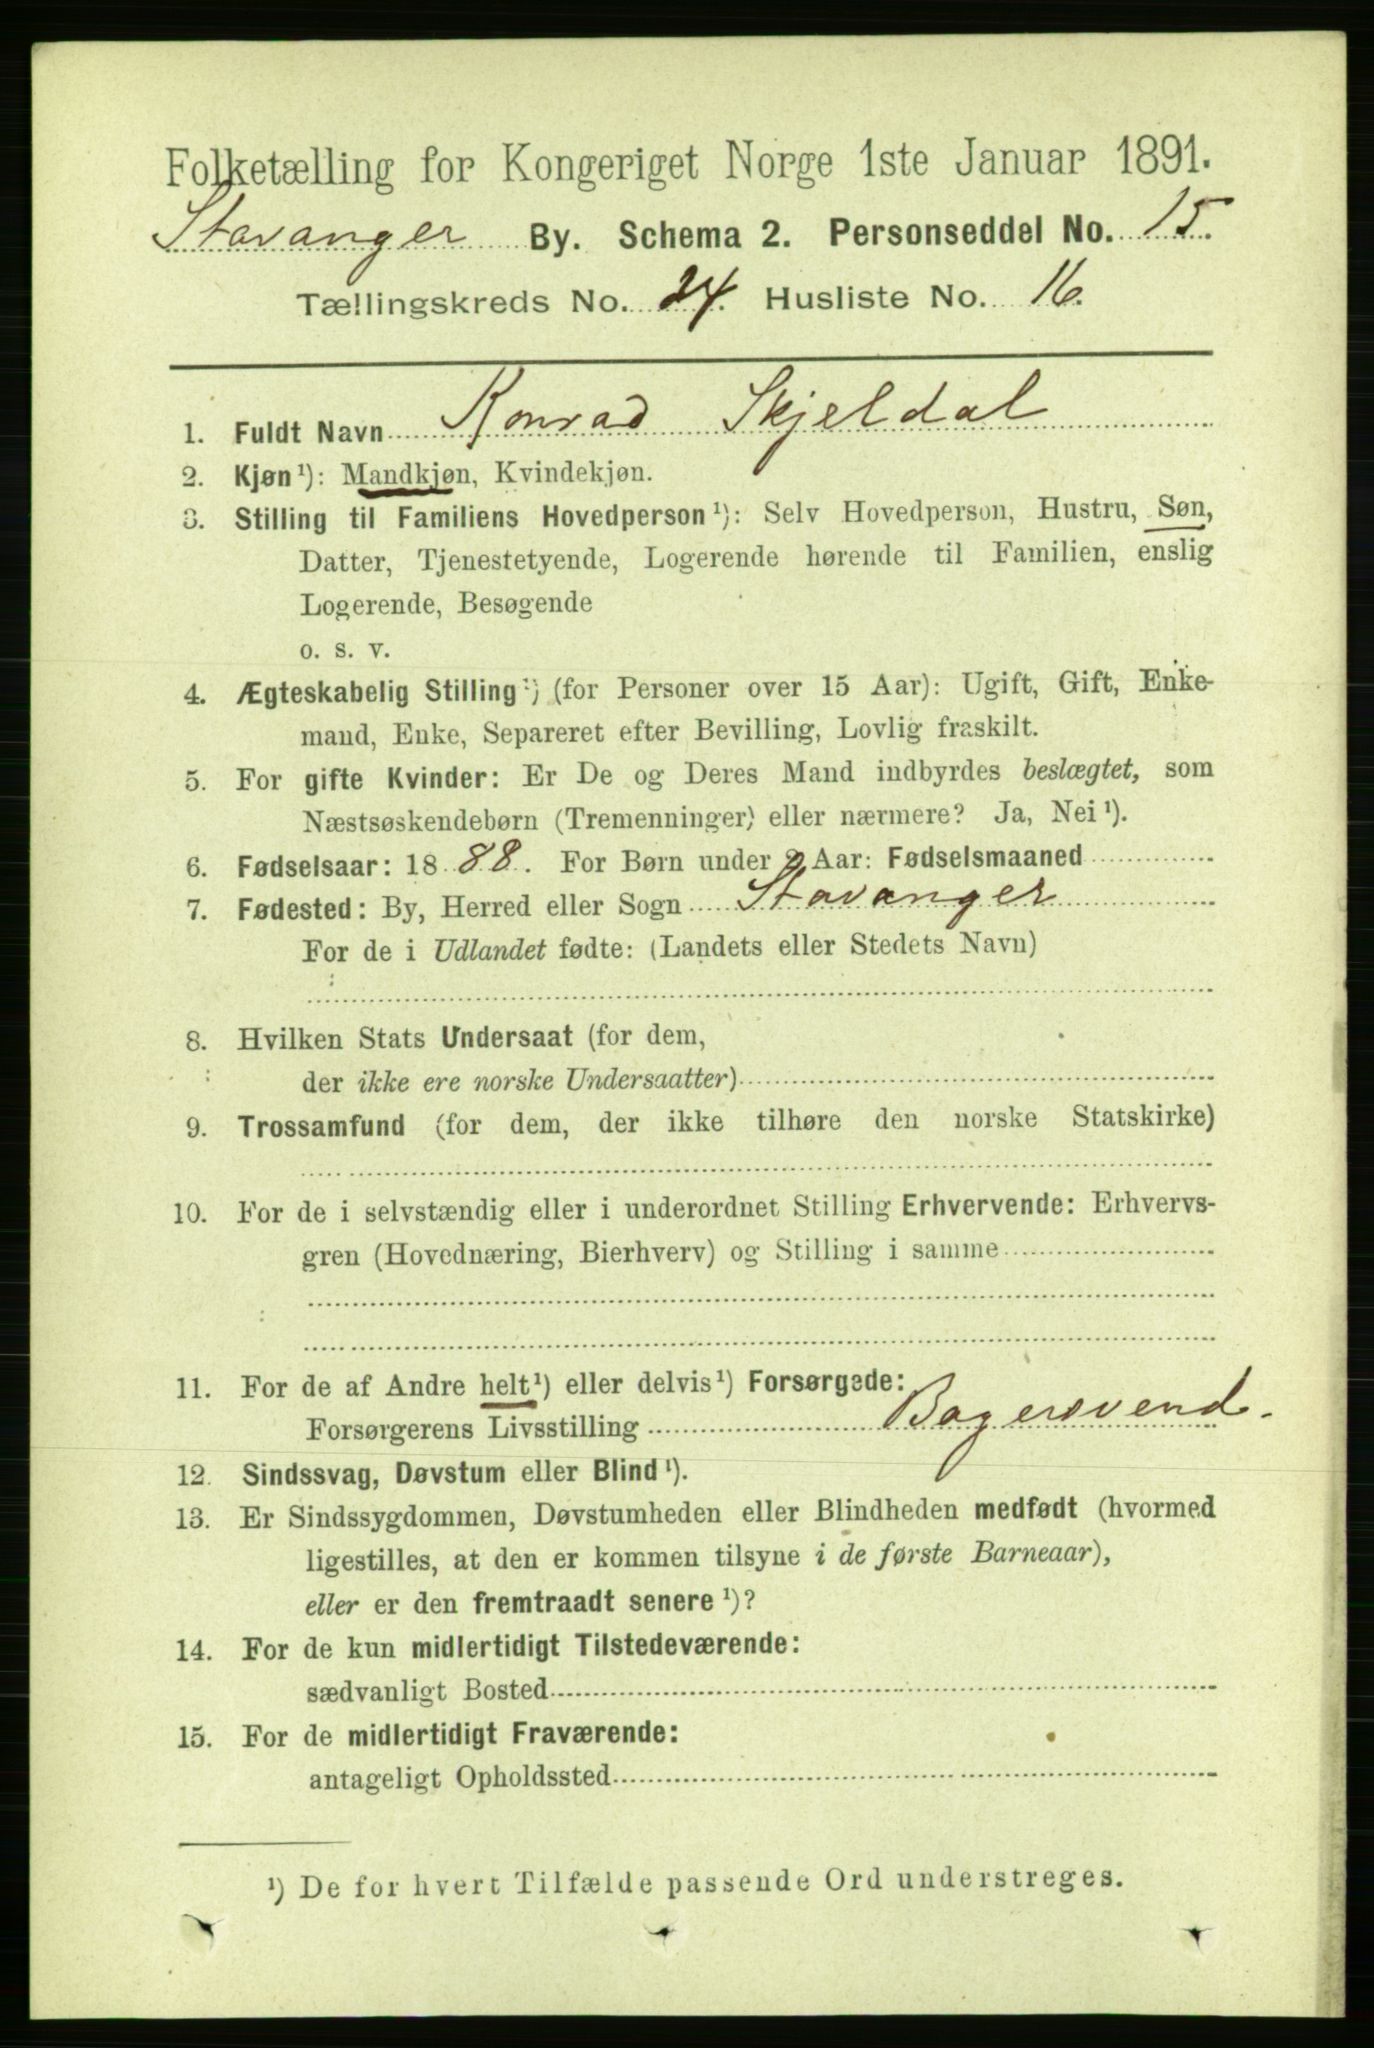 Folketælling for Kongeriget Norge 1ste Januar 1891.
Stavanger By. Schema 2. Personseddel No. 15.
Tællingskreds No. 24. Husliste No. 16.
1. Fuldt Navn Konrad Skjeldal
2. Kjøn¹): Mandkjøn, Kvindekjøn.
3. Stilling til Familiens Hovedperson¹): Selv Hovedperson, Hustru, Søn,
Datter, Tjenestetyende, Logerende hørende til Familien, enslig
Logerende, Besøgende
o. s. v.
4. Ægteskabelig Stilling¹) (for Personer over 15 Aar): Ugift, Gift, Enke-
mand, Enke, Separeret efter Bevilling, Lovlig fraskilt.
5. For gifte Kvinder: Er De og Deres Mand indbyrdes beslægtet, som
Næstsøskendebørn (Tremenninger) eller nærmere? Ja, Nei¹).
6. Fødselsaar: 1888. For Børn under 2 Aar: Fødselsmaaned
7. Fødested: By, Herred eller Sogn Stavanger
For de i Udlandet fødte: (Landets eller Stedets Navn)
8. Hvilken Stats Undersaat (for dem,
der ikke ere norske Undersaatter)
9. Trossamfund (for dem, der ikke tilhøre den norske Statskirke)
10. For de i selvstændig eller i underordnet Stilling Erhvervende: Erhvervs-
gren (Hovednæring, Bierhverv) og Stilling i samme
11. For de af Andre helt¹) eller delvis¹) Forsørgede:
Forsørgerens Livsstilling Bagersvend.
12. Sindssvag, Døvstum eller Blind¹).
13. Er Sindssygdommen, Døvstumheden eller Blindheden medfødt (hvormed
ligestilles, at den er kommen tilsyne i de første Barneaar),
eller er den fremtraadt senere¹)?
14. For de kun midlertidigt Tilstedeværende:
sædvanligt Bosted
15. For de midlertidigt Fraværende:
antageligt Opholdssted
¹) De for hvert Tilfælde passende Ord understreges.